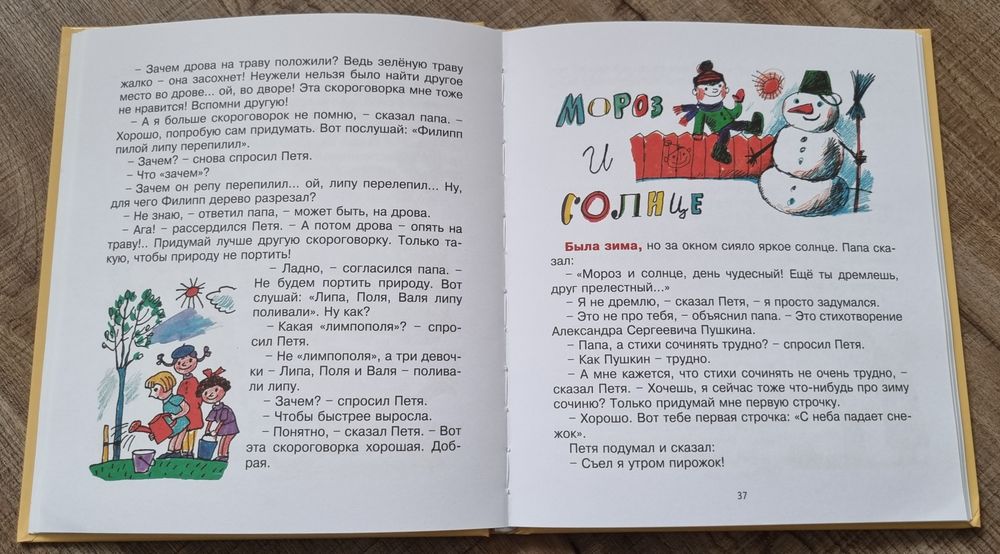 – Зачем дрова на траву положили? Ведь зелёную траву
жалко – она засохнет! Неужели нельзя было найти другое
место во дрове... ой, во дворе! Эта скороговорка мне тоже
не нравится! Вспомни другую!
– А я больше скороговорок не помню, – сказал папа. –
Хорошо, попробую сам придумать. Вот послушай: «Филипп
пилой липу перепилил».
– Зачем? – снова спросил Петя.
– Что «зачем»?
– Зачем он репу перепилил... ой, липу перелепил... Ну,
для чего Филипп дерево разрезал?
– Не знаю, – ответил папа, – может быть, на дрова.
– Ага! – рассердился Петя. – А потом дрова – опять на
траву!.. Придумай лучше другую скороговорку. Только та-
кую, чтобы природу не портить!
– Ладно, – согласился папа. –
Не будем портить природу. Вот
слушай: «Липа, Поля, Валя липу
поливали». Ну как?
– Какая «лимпополя»? – спро-
сил Петя.
– Не «лимпополя», а три девоч-
ки – Липа, Поля и Валя – полива-
ли липу.
– Зачем? – спросил Петя.
– Чтобы быстрее выросла.
– Понятно, – сказал Петя. – Вот
эта скороговорка хорошая. Доб-
рая.
МОРОЗ
И
СОЛНЦЕ
Была зима, но за окном сияло яркое солнце. Папа ска-
зал:
– «Мороз и солнце, день чудесный! Ещё ты дремлешь,
друг прелестный...»
– Я не дремлю, – сказал Петя, – я просто задумался.
– Это не про тебя, – объяснил папа. – Это стихотворение
Александра Сергеевича Пушкина.
– Папа, а стихи сочинять трудно? – спросил Петя.
– Как Пушкин – трудно.
– А мне кажется, что стихи сочинять не очень трудно, –
сказал Петя. – Хочешь, я сейчас тоже что-нибудь про зиму
сочиню? Только придумай мне первую строчку.
– Хорошо. Вот тебе первая строчка: «С неба падает сне-
жок».
Петя подумал и сказал:
– Съел я утром пирожок!
37